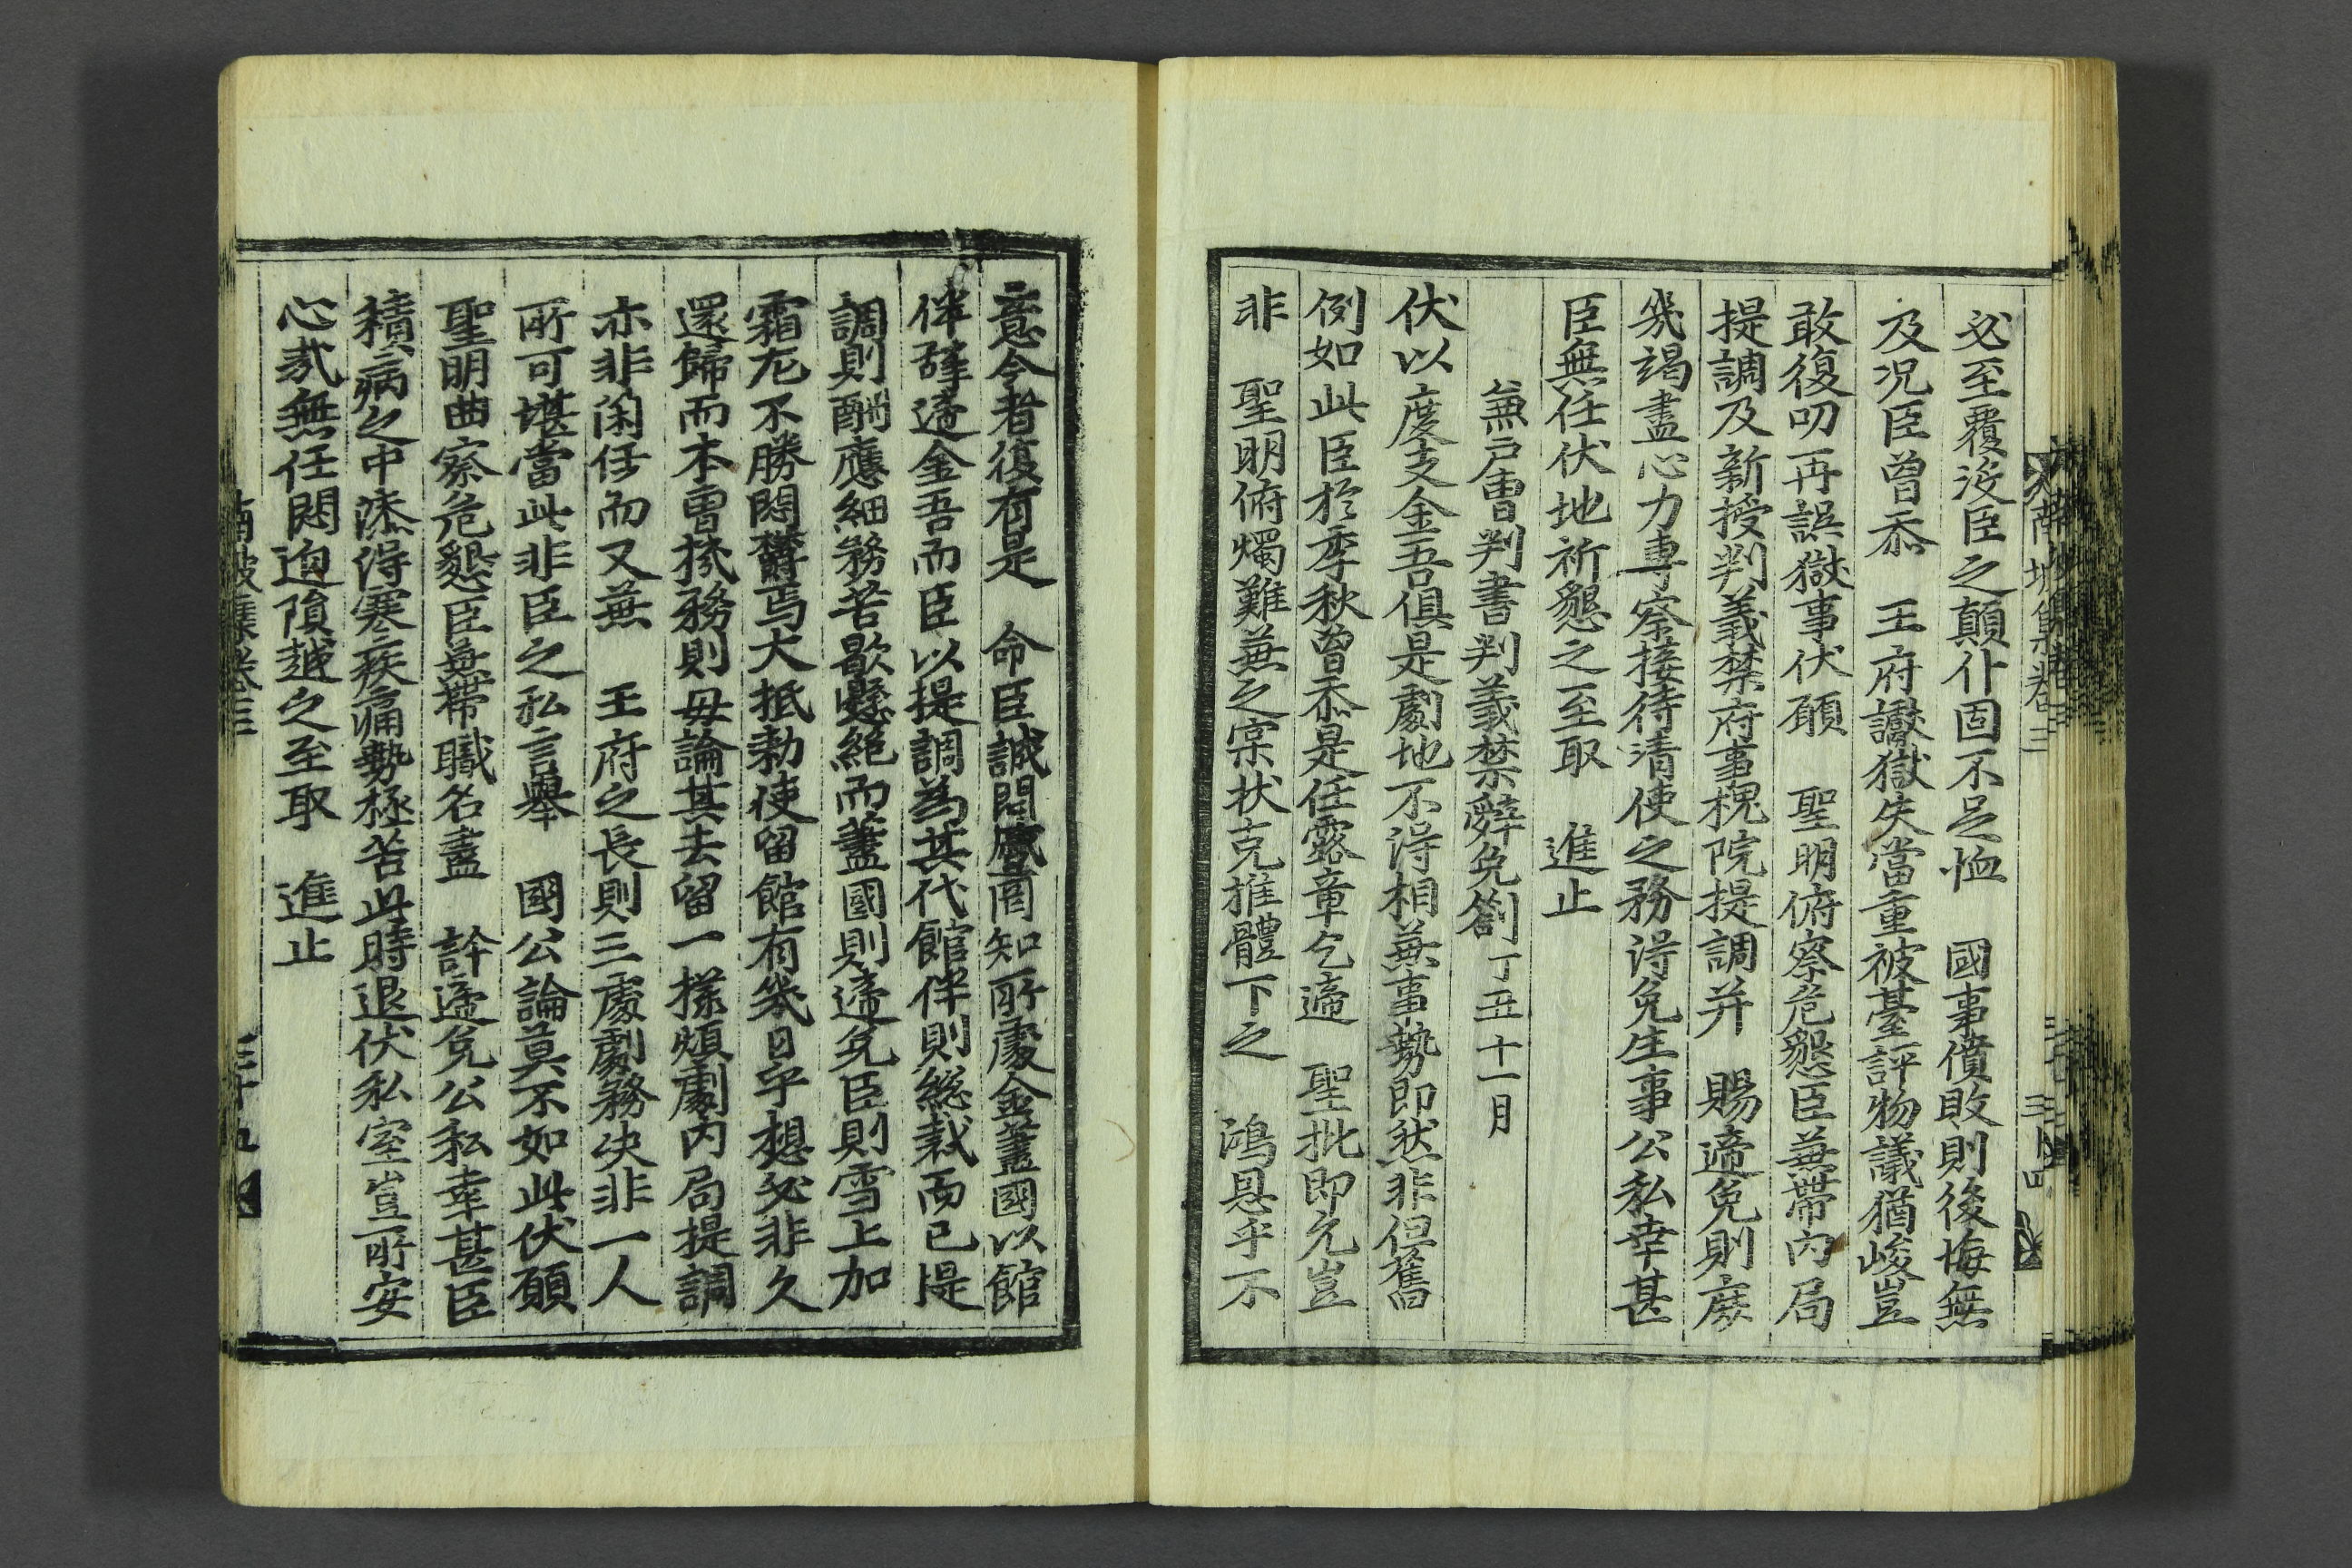 必至覆沒臣之顛仆固不足恤　國事僨敗則後悔無
及况臣曾忝　王府讞獄失當重被臺評物議猶峻豈
敢復叨再誤獄事伏願　聖明俯察危懇臣兼帶內局
提調及新授判義禁府事槐院提調并　賜遞免則庶
幾竭盡心力專察接待清使之務得免生事公私幸甚
臣無任伏地祈懇之至取　進止
兼戶曹判書判義禁辭免劄丁丑十一月
伏以度支金吾俱是劇地不得相兼事勢即然非但舊
例如此臣於季秋曾忝是任露章乞遞　聖批即允豈
非　聖明俯燭難兼之實狀克推體下之　鴻恩乎不
意今者復有是　命臣誠悶蹙罔知所處金藎國以館
伴辭遞金吾而臣以提調爲其代館伴則總裁而已提
調則酬應細務苦歇懸絕而藎國則遞免臣則雪上加
霜尤不勝悶鬱焉大抵勑使留館有幾日乎想必非久
還歸而本曹務則毋論其去留一樣煩劇內局提調
亦非閑任而又兼　王府之長則三處劇務決非一人
所可堪當此非臣之私言舉　國公論莫不如此伏願
聖明曲察危懇臣兼帶職名盡　許遞免公私幸甚臣
積病之中添得寒疾痛勢極苦此時退伏私室豈所安
心哉無任悶迫隕越之至取　進止
南坡集卷三
三十四
南坡集卷三
三十五